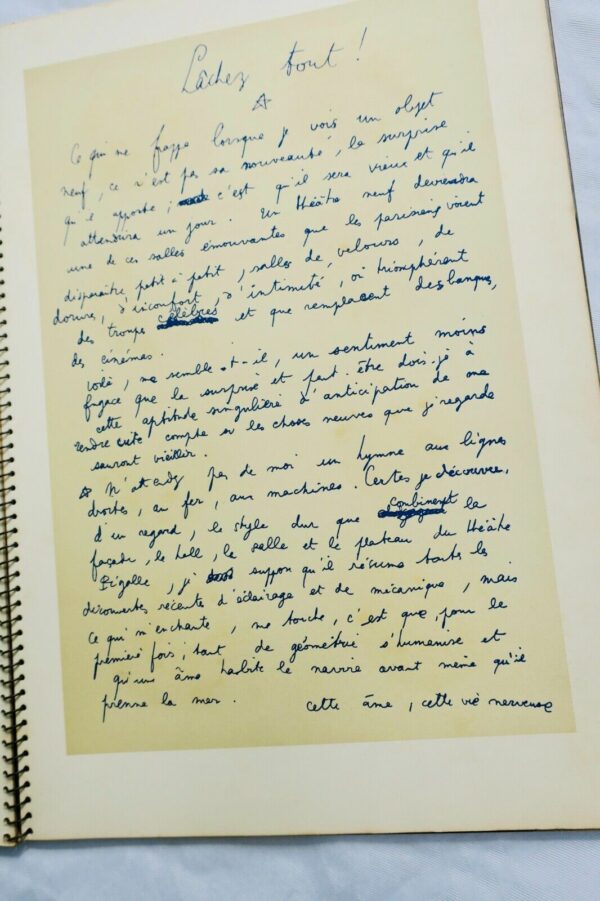 Lâchez tout !
Ce qui me frappe lorsque je vois un objet
neuf, ce n'est pas sa nouveauté, la surprise
qu'il apporte, c'est qu'il sera vieux et qu'il
attendrira un jour. Un théâtre neuf deviendra
une de ces salles émouvantes que les parisiens voient
disparaître petit à petit, salles de velours, de
dorures, d'inconfort, d'intimité, où triomphèrent
des troupes célèbres et que remplacent des banques,
des cinémas.
voilà, me semble-t-il, un sentiment moins
fugace que la surprise et peut-être dois-je à
cette aptitude singulière d'anticipation de me
rendre compte si les choses neuves que je regarde
sauront vieillir.
N'attendez pas de moi un hymne aux lignes
droites, au fer, aux machines. Certes je découvre,
d'un regard, le style dur que combinent la
façade, le hall, la salle et le plateau du théâtre
Pigalle, je suppose qu'il résume toutes les
découvertes récentes d'éclairage et de mécanique, mais
ce qui m'enchante, me touche, c'est que, pour la
première fois, tant de géométrie s'humanise et
qu'une âme habite le navire avant même qu'il
prenne la mer. cette âme, cette vie nerveuse